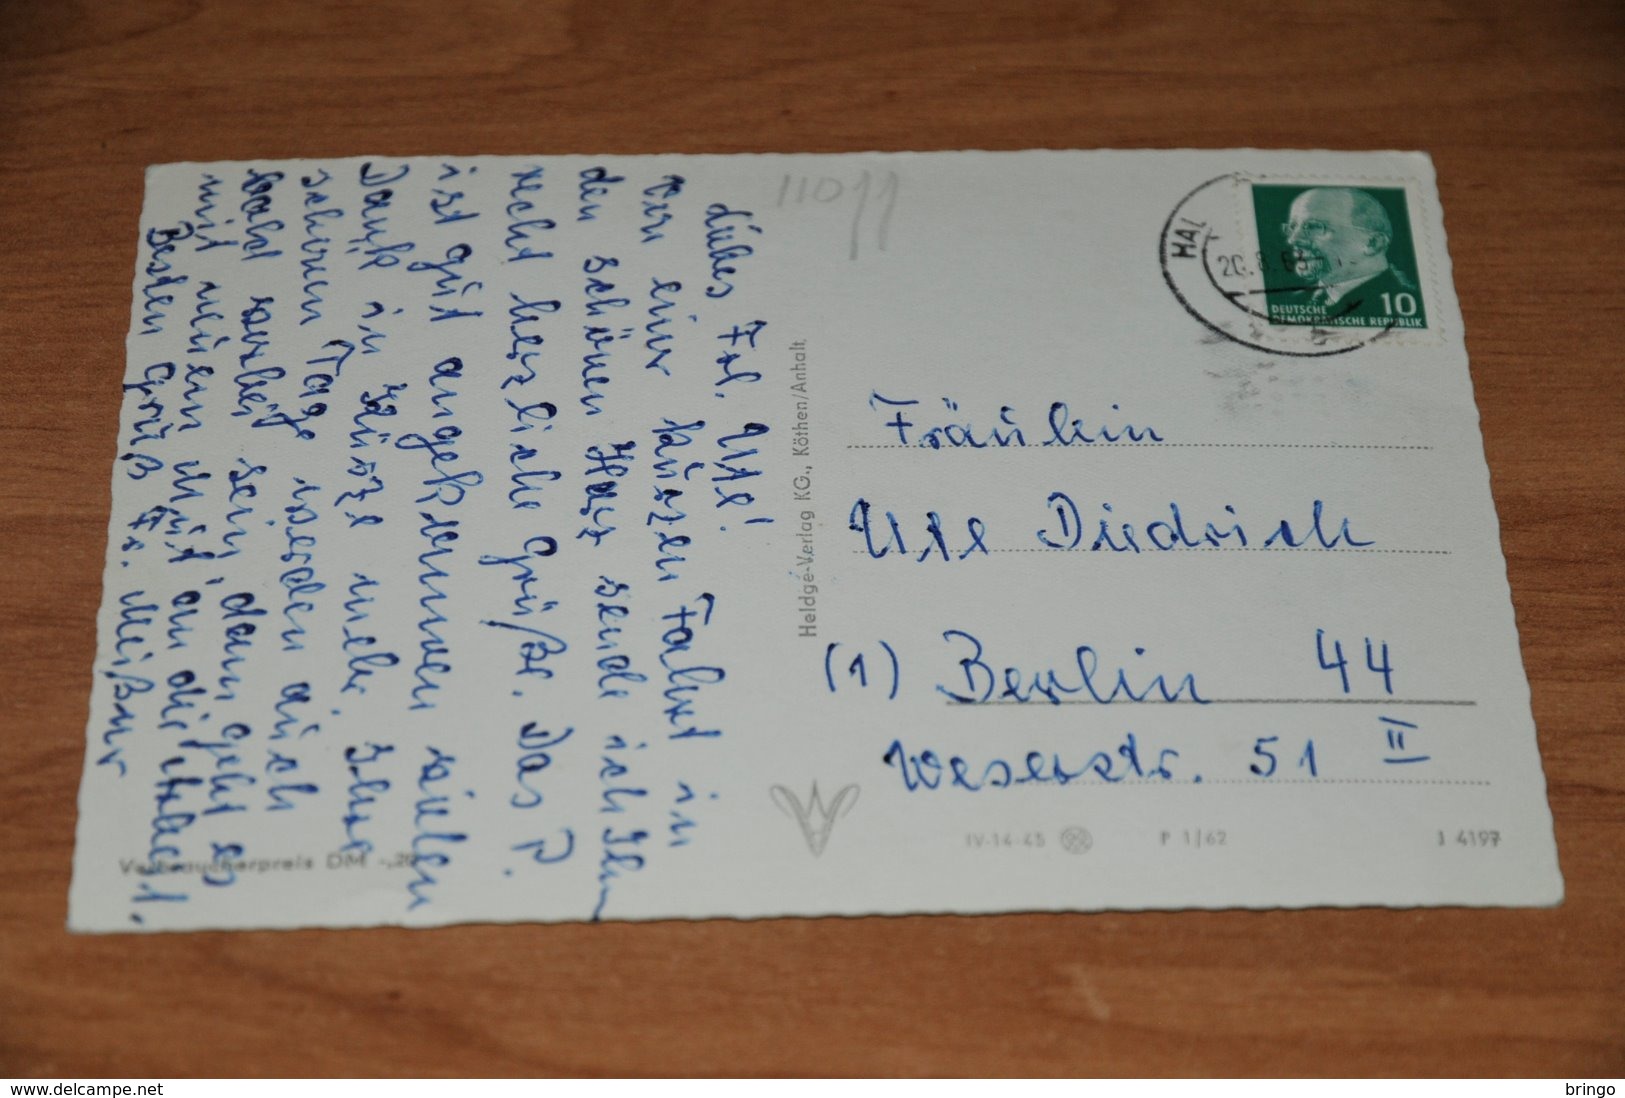 Liebes Frl. Ute!
Von einer kurzen Fahrt in
den schönen Harz sende ich Ihnen
recht herzliche Grüße. Das P.
ist gut angekommen vielen
Dank in Kürze mehr. Ihre
schönen Tage werden auch
bald vorbei sein, dann geht es
mit neuem Mut an die Arbeit.
Besten Gruß Fr. Meißner
11011
Heldge-Verlag KG., Köthen/Anhalt
Verbraucherpreis DM -,20
HAL
20.8.6
10
DEUTSCHE
DEMOKRATISCHE REPUBLIK
Fräulein
Ute Diedrich
(1) Berlin 44
Weserstr. 51 II
IV-14-45 P 1/62 J 4197
delcampe.net
bringo